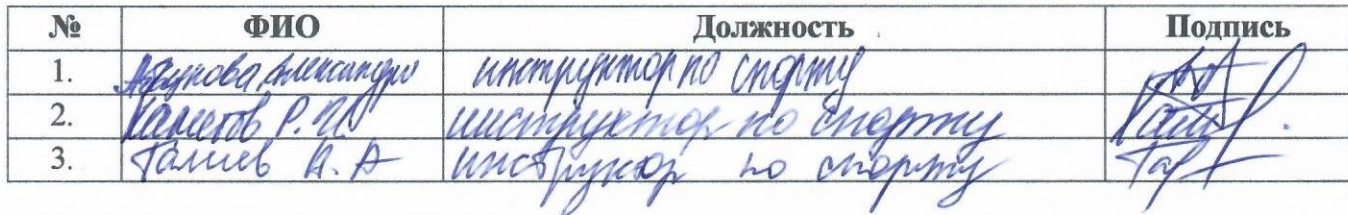 № ФИО Должность Подпись
1. Александра инструктор по спорту
2. Р. И. инструктор по спорту
3. Галиев А. А инструктор по спорту